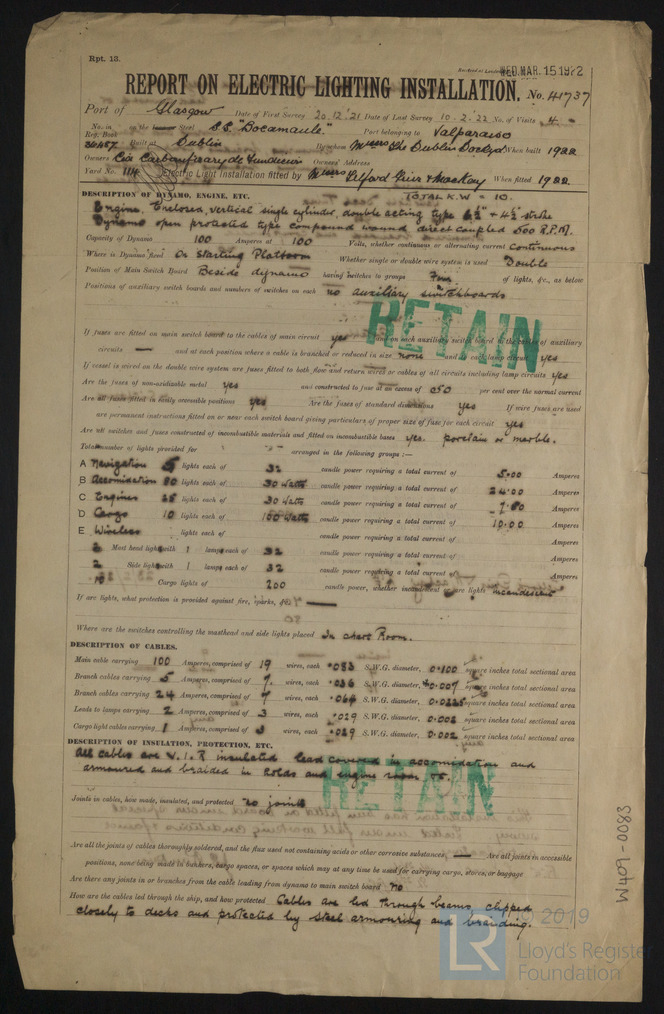 Rpt. 13.
WED. MAR. 15 1922
REPORT ON ELECTRIC LIGHTING INSTALLATION. No. 41737
Port of Glasgow Date of First Survey 20.12.21 Date of Last Survey 10.2.22 No. of Visits 4
No. in Reg. Book on the Steel S.S. "Bocamaule" Port belonging to Valparaiso
Built at Dublin By whom Messrs The Dublin Dockyd When built 1922
Owners Cia Carbonifera y de Fundicion Owners' Address
Yard No. 114 Electric Light Installation fitted by Messrs Telford Grier & Mackay When fitted 1922
DESCRIPTION OF DYNAMO, ENGINE, ETC. TOTAL K.W = 10.
Engine. Enclosed, vertical single cylinder, double acting type 6½" + 4½" stroke
Dynamo open protected type compound wound direct coupled 500 R.P.M.
Capacity of Dynamo 100 Amperes at 100 Volts, whether continuous or alternating current continuous
Where is Dynamo fixed On Starting Platform Whether single or double wire system is used Double
Position of Main Switch Board Beside dynamo having switches to groups Four of lights, &c., as below
Positions of auxiliary switch boards and numbers of switches on each no auxiliary switchboards
RETAIN
If fuses are fitted on main switch board to the cables of main circuit yes and on each auxiliary switch board to the cables of auxiliary
circuits — and at each position where a cable is branched or reduced in size none and to each lamp circuit yes
If vessel is wired on the double wire system are fuses fitted to both flow and return wires or cables of all circuits including lamp circuits yes
Are the fuses of non-oxidizable metal yes and constructed to fuse at an excess of 50 per cent over the normal current
Are all fuses fitted in easily accessible positions yes Are the fuses of standard dimensions yes If wire fuses are used
are permanent instructions fitted on or near each switch board giving particulars of proper size of fuse for each circuit yes
Are all switches and fuses constructed of incombustible materials and fitted on incombustible bases yes. porcelain or marble.
Total number of lights provided for arranged in the following groups :—
A Navigation 5 lights each of 32 candle power requiring a total current of 5.00 Amperes
B Accomidation 80 lights each of 30 Watts candle power requiring a total current of 24.00 Amperes
C Engines 25 lights each of 30 Watts candle power requiring a total current of 7.50 Amperes
D Cargo 10 lights each of 100 Watts candle power requiring a total current of 10.00 Amperes
E Wireless lights each of candle power requiring a total current of Amperes
2 Mast head light with 1 lamps each of 32 candle power requiring a total current of Amperes
2 Side light with 1 lamps each of 32 candle power requiring a total current of Amperes
10 Cargo lights of 200 candle power, whether incandescent or arc lights incandescent
If arc lights, what protection is provided against fire, sparks, &c. —
Where are the switches controlling the masthead and side lights placed In chart Room.
DESCRIPTION OF CABLES.
Main cable carrying 100 Amperes, comprised of 19 wires, each .083 S.W.G. diameter, 0.100 square inches total sectional area
Branch cables carrying 5 Amperes, comprised of 7 wires, each .036 S.W.G. diameter, 0.007 square inches total sectional area
Branch cables carrying 24 Amperes, comprised of 7 wires, each .064 S.W.G. diameter, 0.0225 square inches total sectional area
Leads to lamps carrying 2 Amperes, comprised of 3 wires, each .029 S.W.G. diameter, 0.002 square inches total sectional area
Cargo light cables carrying 1 Amperes, comprised of 3 wires, each .029 S.W.G. diameter, 0.002 square inches total sectional area
DESCRIPTION OF INSULATION, PROTECTION, ETC.
All cables are V.I.R insulated lead covered in accomidation and
armoured and braided in holds and engine room
RETAIN
Joints in cables, how made, insulated, and protected no joints
Are all the joints of cables thoroughly soldered, and the flux used not containing acids or other corrosive substances — Are all joints in accessible
positions, none being made in bunkers, cargo spaces, or spaces which may at any time be used for carrying cargo, stores, or baggage
Are there any joints in or branches from the cable leading from dynamo to main switch board no
How are the cables led through the ship, and how protected Cables are led through beams clipped
closely to decks and protected by steel armouring and braiding.
W409-0083
LR © 2019
Lloyd's Register
Foundation